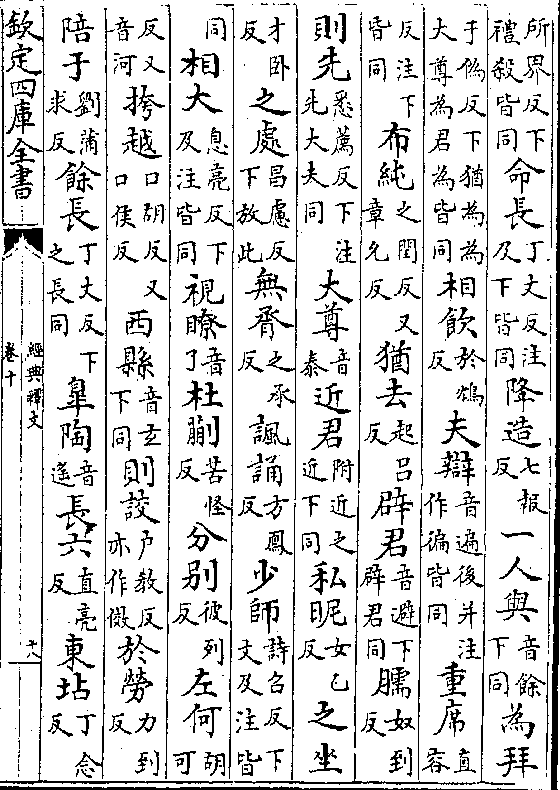 所界反下禮殺皆同命長丁丈反注及下皆同降造七報反一人與音餘下同為拜
于偽反下猶為為大尊為君為皆同相飲於鴆反夫辯音遍後并注作徧皆同重席直容
反注下皆同布純之閏反又章允反猶去起呂反辟君音避下辟君同臑奴到反
則先悉薦反下注先大夫同大尊音泰近君附近之近下同私昵女乙反之坐
才卧反之處昌慮反下放此無脀之承反諷誦方鳳反少師詩召反下文及注皆
同相大息亮反下及注皆同視瞭音了杜蒯苦怪反分别彼列反左何胡可
反又音河挎越口胡反又口侯反西縣音玄下同則詨户教反亦作傚於勞力到反
陪于劉蒲求反餘長丁丈反下之長同皐陶音遙長六直亮反東坫丁念反
欽定四庫全書
經典釋文
卷十
十八